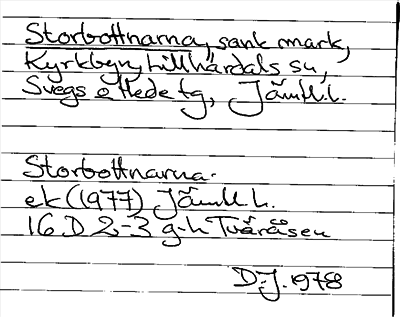 Storbottnarna, sank mark,
Kyrkbyn, Lillhärdals sn,
Svegs o Hede tg, Jämtl.l.
Storbottnarna.
ek (1977) Jämtl.l.
16 D 2-3 g-h Tvåråsen
D.J. 1978